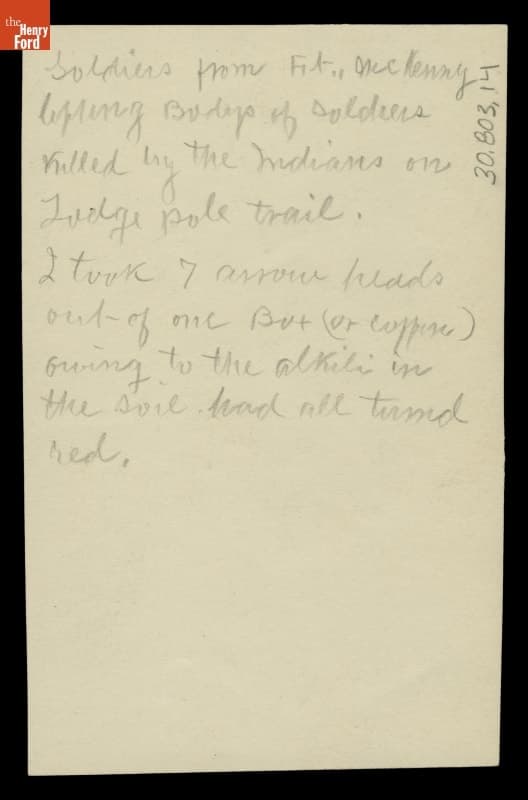 the
Henry
Ford
Soldiers from Ft., McKenny
lifting Bodys of soldiers
Killed by the Indians on
Lodge pole trail.
I took 7 arrow heads
out of one Box (or coffin)
owing to the alkili in
the soil had all turnd
red.
30.803.14